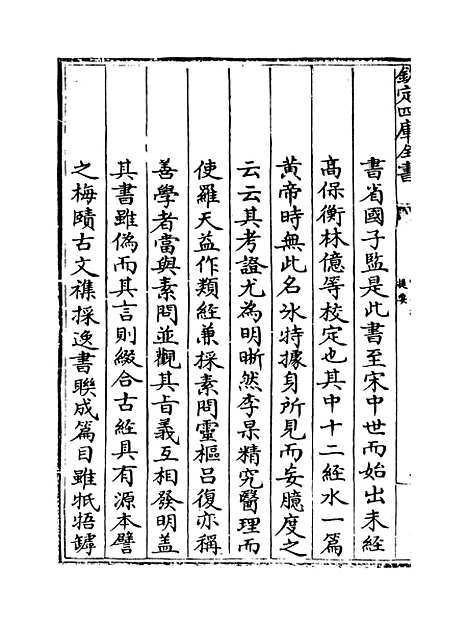 欽定四庫全書
提要
書省國子監是此書至宋中世而始出未經
高保衡林億等校定也其中十二經水一篇
黄帝時無此名冰特據身所見而妄臆度之
云云其考證尤為明晰然李杲精究醫理而
使羅天益作類經兼採素問靈樞呂復亦稱
善學者當與素問並觀其旨義互相發明蓋
其書雖偽而其言則綴合古經具有源本譬
之梅賾古文襍採逸書聯成篇目雖牴牾罅